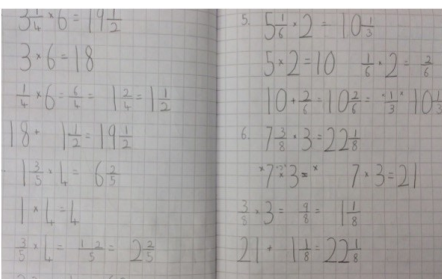 3 1/4 × 6 = 19 1/2
3 × 6 = 18
1/4 × 6 = 6/4 = 1 2/4 = 1 1/2
18 + 1 1/2 = 19 1/2
1 3/5 × 4 = 6 2/5
1 × 4 = 4
3/5 × 4 = 12/5 = 2 2/5
5. 5 1/6 × 2 = 10 1/3
5 × 2 = 10 1/6 × 2 = 2/6
10 + 2/6 = 10 2/6 = 1/3 10 1/3
6. 7 3/8 × 3 = 22 1/8
7 3 = 7 × 3 = 21
3/8 × 3 = 9/8 = 1 1/8
21 + 1 1/8 = 22 1/8